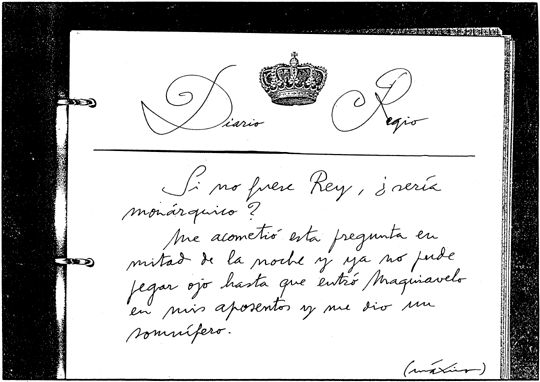 Diario Regio
Si no fuese Rey, ¿sería
monárquico?
Me acometió esta pregunta en
mitad de la noche y ya no pude
pegar ojo hasta que entró Maquiavelo
en mis aposentos y me dio un
somnífero.
(máximo)